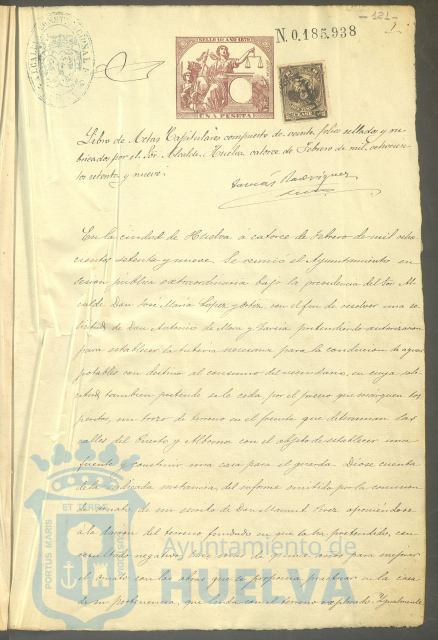 - 121 -
N. 0.185.938
SELLO 10º AÑO 1879
UNA PESETA
Libro de Actas Capitulares compuesto de veinte folios sellados y ru-
bricados por el Sor. Alcalde. Huelva catorce de Febrero de mil ochocien-
tos setenta y nueve.
Tomás Rodriguez
En la ciudad de Huelva á catorce de Febrero de mil ocho-
cientos setenta y nueve, se reunió el Ayuntamiento en
sesion pública extraordinaria bajo la presidencia del Sor. Al-
calde Don José Maria Lopez y Ortiz con el fin de resolver una so-
licitud de Don Antonio de Mora y Garcia pretendiendo autorizacion
para establecer la tuberia necesaria para la conduccion de aguas
potables con destino al consumo del vecindario, en cuya soli-
citud tambien pretende se le ceda por el precio que marquen los
peritos, un trozo de terreno en el frente que determinan las
calles del Puerto y Alborno con el objeto de establecer una
fuente y construir una casa para el guarda. Diose cuenta
de la indicada instancia, del informe emitido por la comision
de ornato, de un escrito de Don Manuel Perez oponiéndose
á la donacion del terreno fundado en que lo ha pretendido, con
negativa para mejorar
el ornato con las obras que se proponia practicar en la casa
de su pertenencia, que linda con el terreno explicado. Igualmente
PORTUS MARIS
ET TERRAE
CUSTODIA
Ayuntamiento de
HUELVA